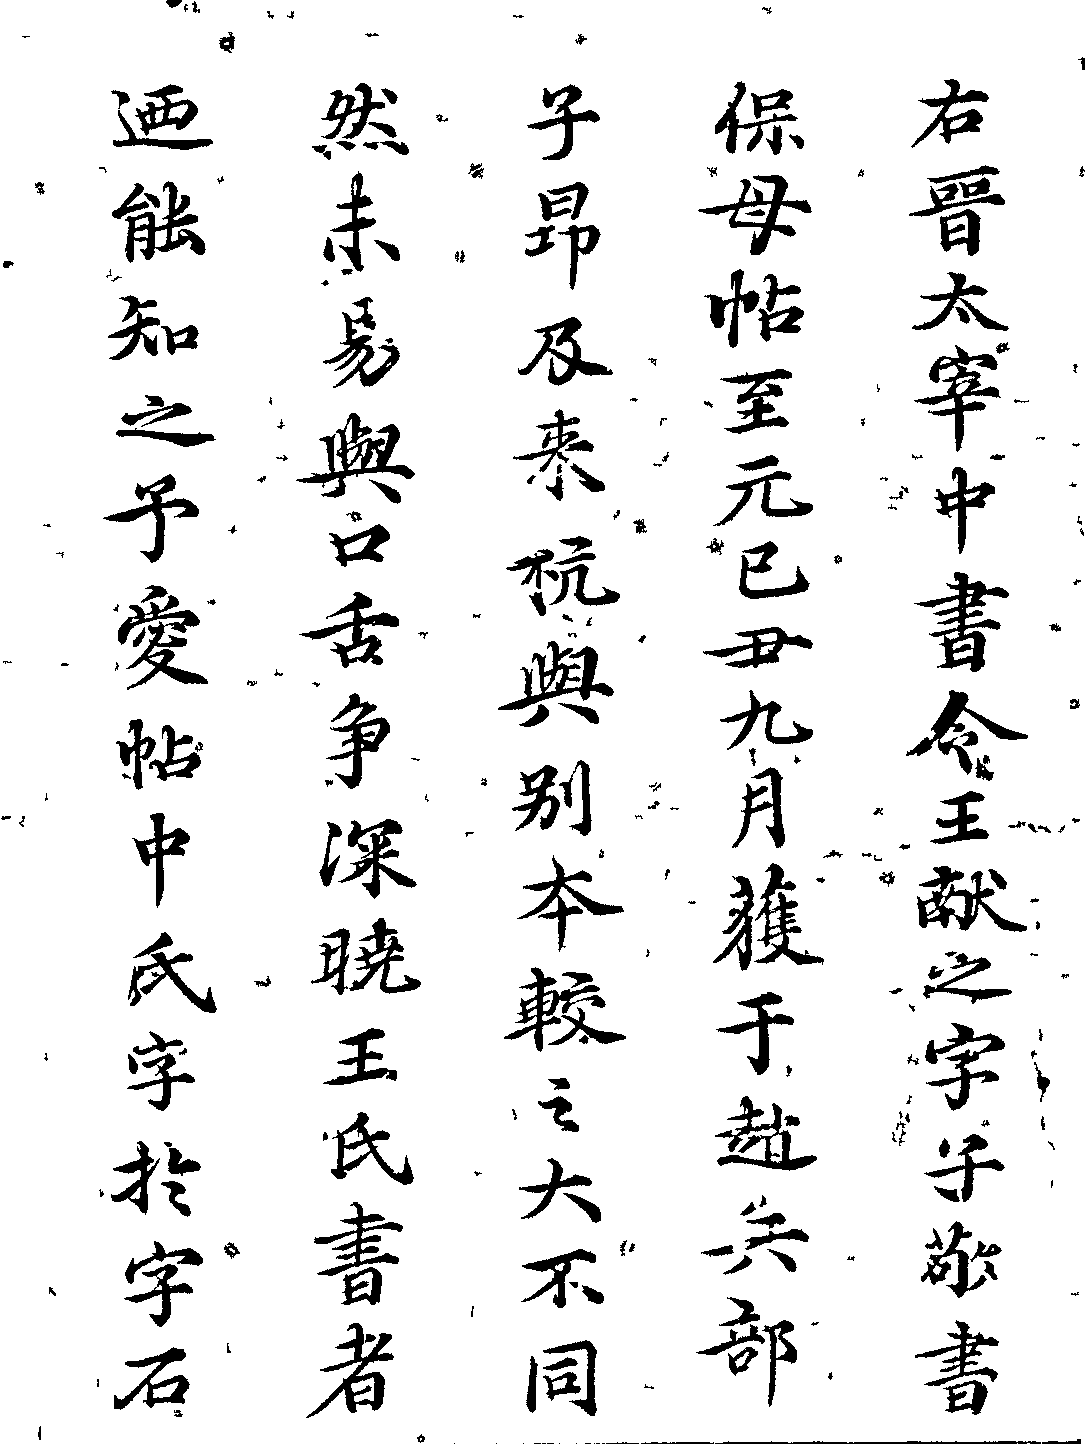 右晉太宰中書令王献之字子敬書
保母帖至元己丑九月獲于趙兵部
子昂及来杭與别本較之大不同
然未易與口舌争深曉王氏書者
迺能知之予愛帖中氏字於字石